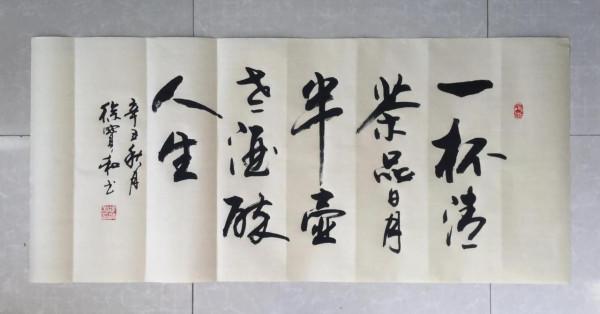 一杯清
茶品日月
半壶
老酒醉
人生
辛丑秋月
徐寶和书